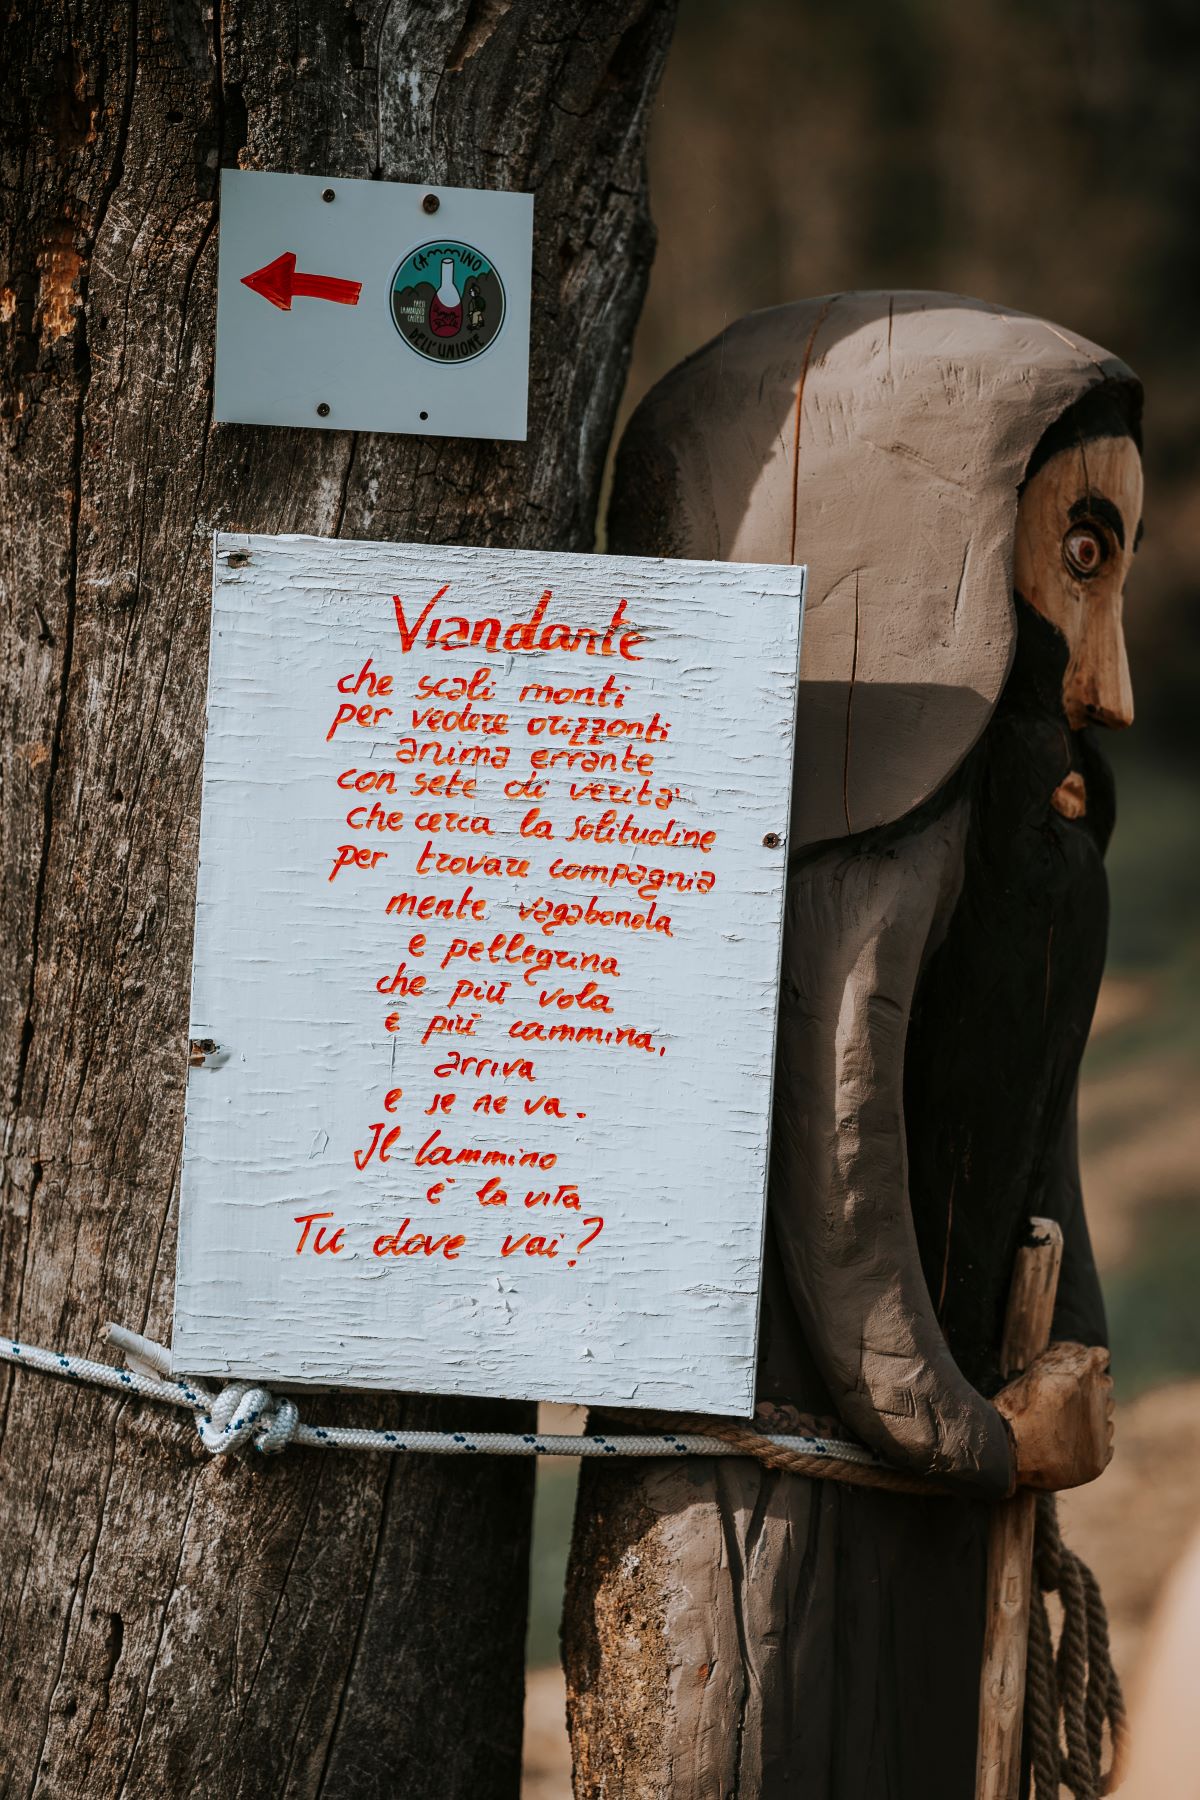 CAMMINO
DELL'UNIONE
Viandante
che scali monti
per vedere orizzonti
anima errante
con sete di verità
che cerca la solitudine
per trovare compagnia
mente vagabonda
e pellegrina
che più vola
e più cammina,
arriva
e se ne va.
Il cammino
è la vita
Tu dove vai?